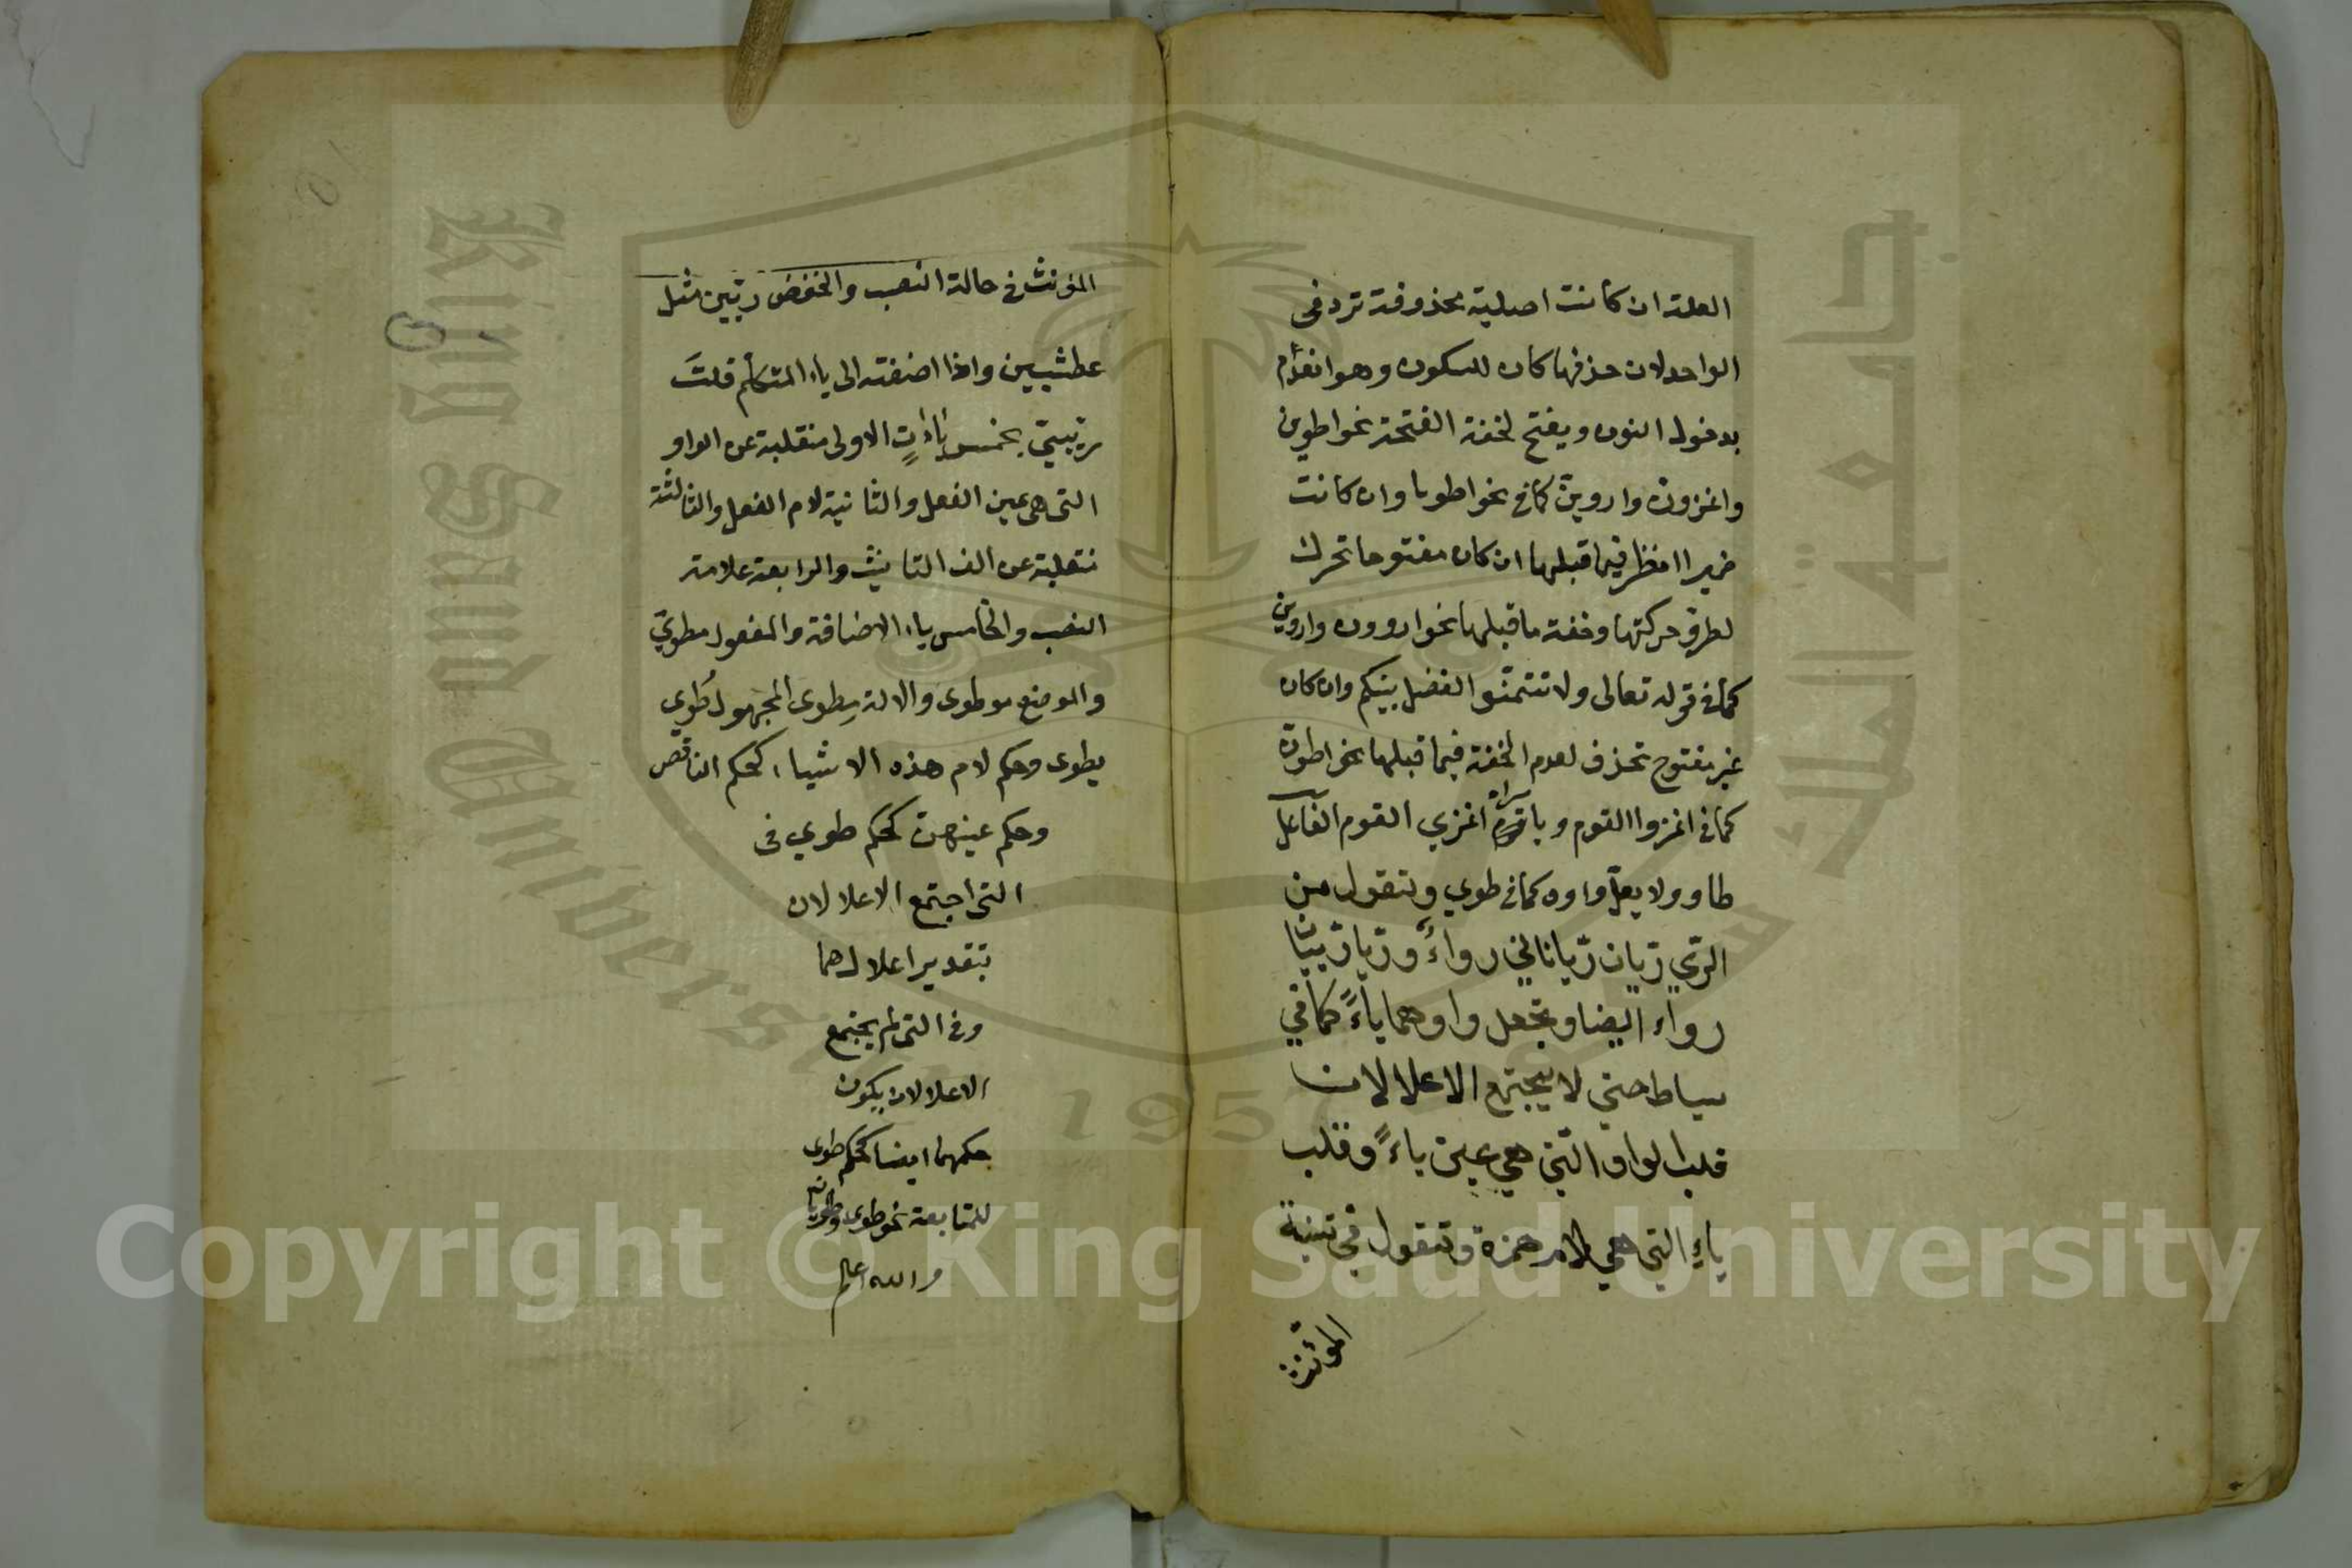 العلة ان كانت اصلية محذوفة ترد فى
الواحد لان حذفها كان للسكون وهو انعدام
بدخول النون ويفتح لخفة الفتحة نحو اطوين
واغزون واروين كما فى نحو اطويا وان كانت
ضميرا انظر فيما قبلها ان كان مفتوحا تحرك
لطرو حركتها وخفة ما قبلها نحو اروون واروين
كما فى قوله تعالى ولا تنتمسوا الفضل بينكم وان كان
غير مفتوح تحذف لعدم الخفة فيما قبلها نحو اطون
كما فى اغزوا القوم ويا امراة اغزي القوم الفاعل
طاو ولا يعل واوه كما فى طوي وتقول من
الري ريان ريانان رواء وريا رييان
رواء ايضا ويجعل واوهما ياء كما في
سياط حتى لا يجتمع الاعلالان
قلب الواو التي هي عين ياء وقلب
ياء التي هي لام همزة وتقول في تثنية
المؤنث
المؤنث فى حالة النصب والخفض رييين مثل
عطشيين واذا اضفته الى ياء المتكلم قلت
رييي بخمس ياءات الاولى منقلبة عن الواو
التى هى عين الفعل والثانية لام الفعل والثالثة
منقلبة عن الف التانيث والرابعة علامة
النصب والخامس ياء الاضافة والمفعول مطوي
والموضع موطوى والالة مطوى المجهول طوي
يطوى وحكم لام هذه الاشياء كحكم الناقص
وحكم عينهن كحكم طوي فى
التى اجتمع الاعلالان
بتقدير اعلالهما
وفى التى لم يجتمع
الاعلالان يكون
حكمهما ايضا كحكم طوى
للمتابعة نحو طوى وطويان
والله اعلم
Copyright © King Saud University
King Saud University
جامعة الملك سعود
1957